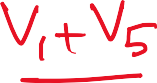 V₁ + V₅